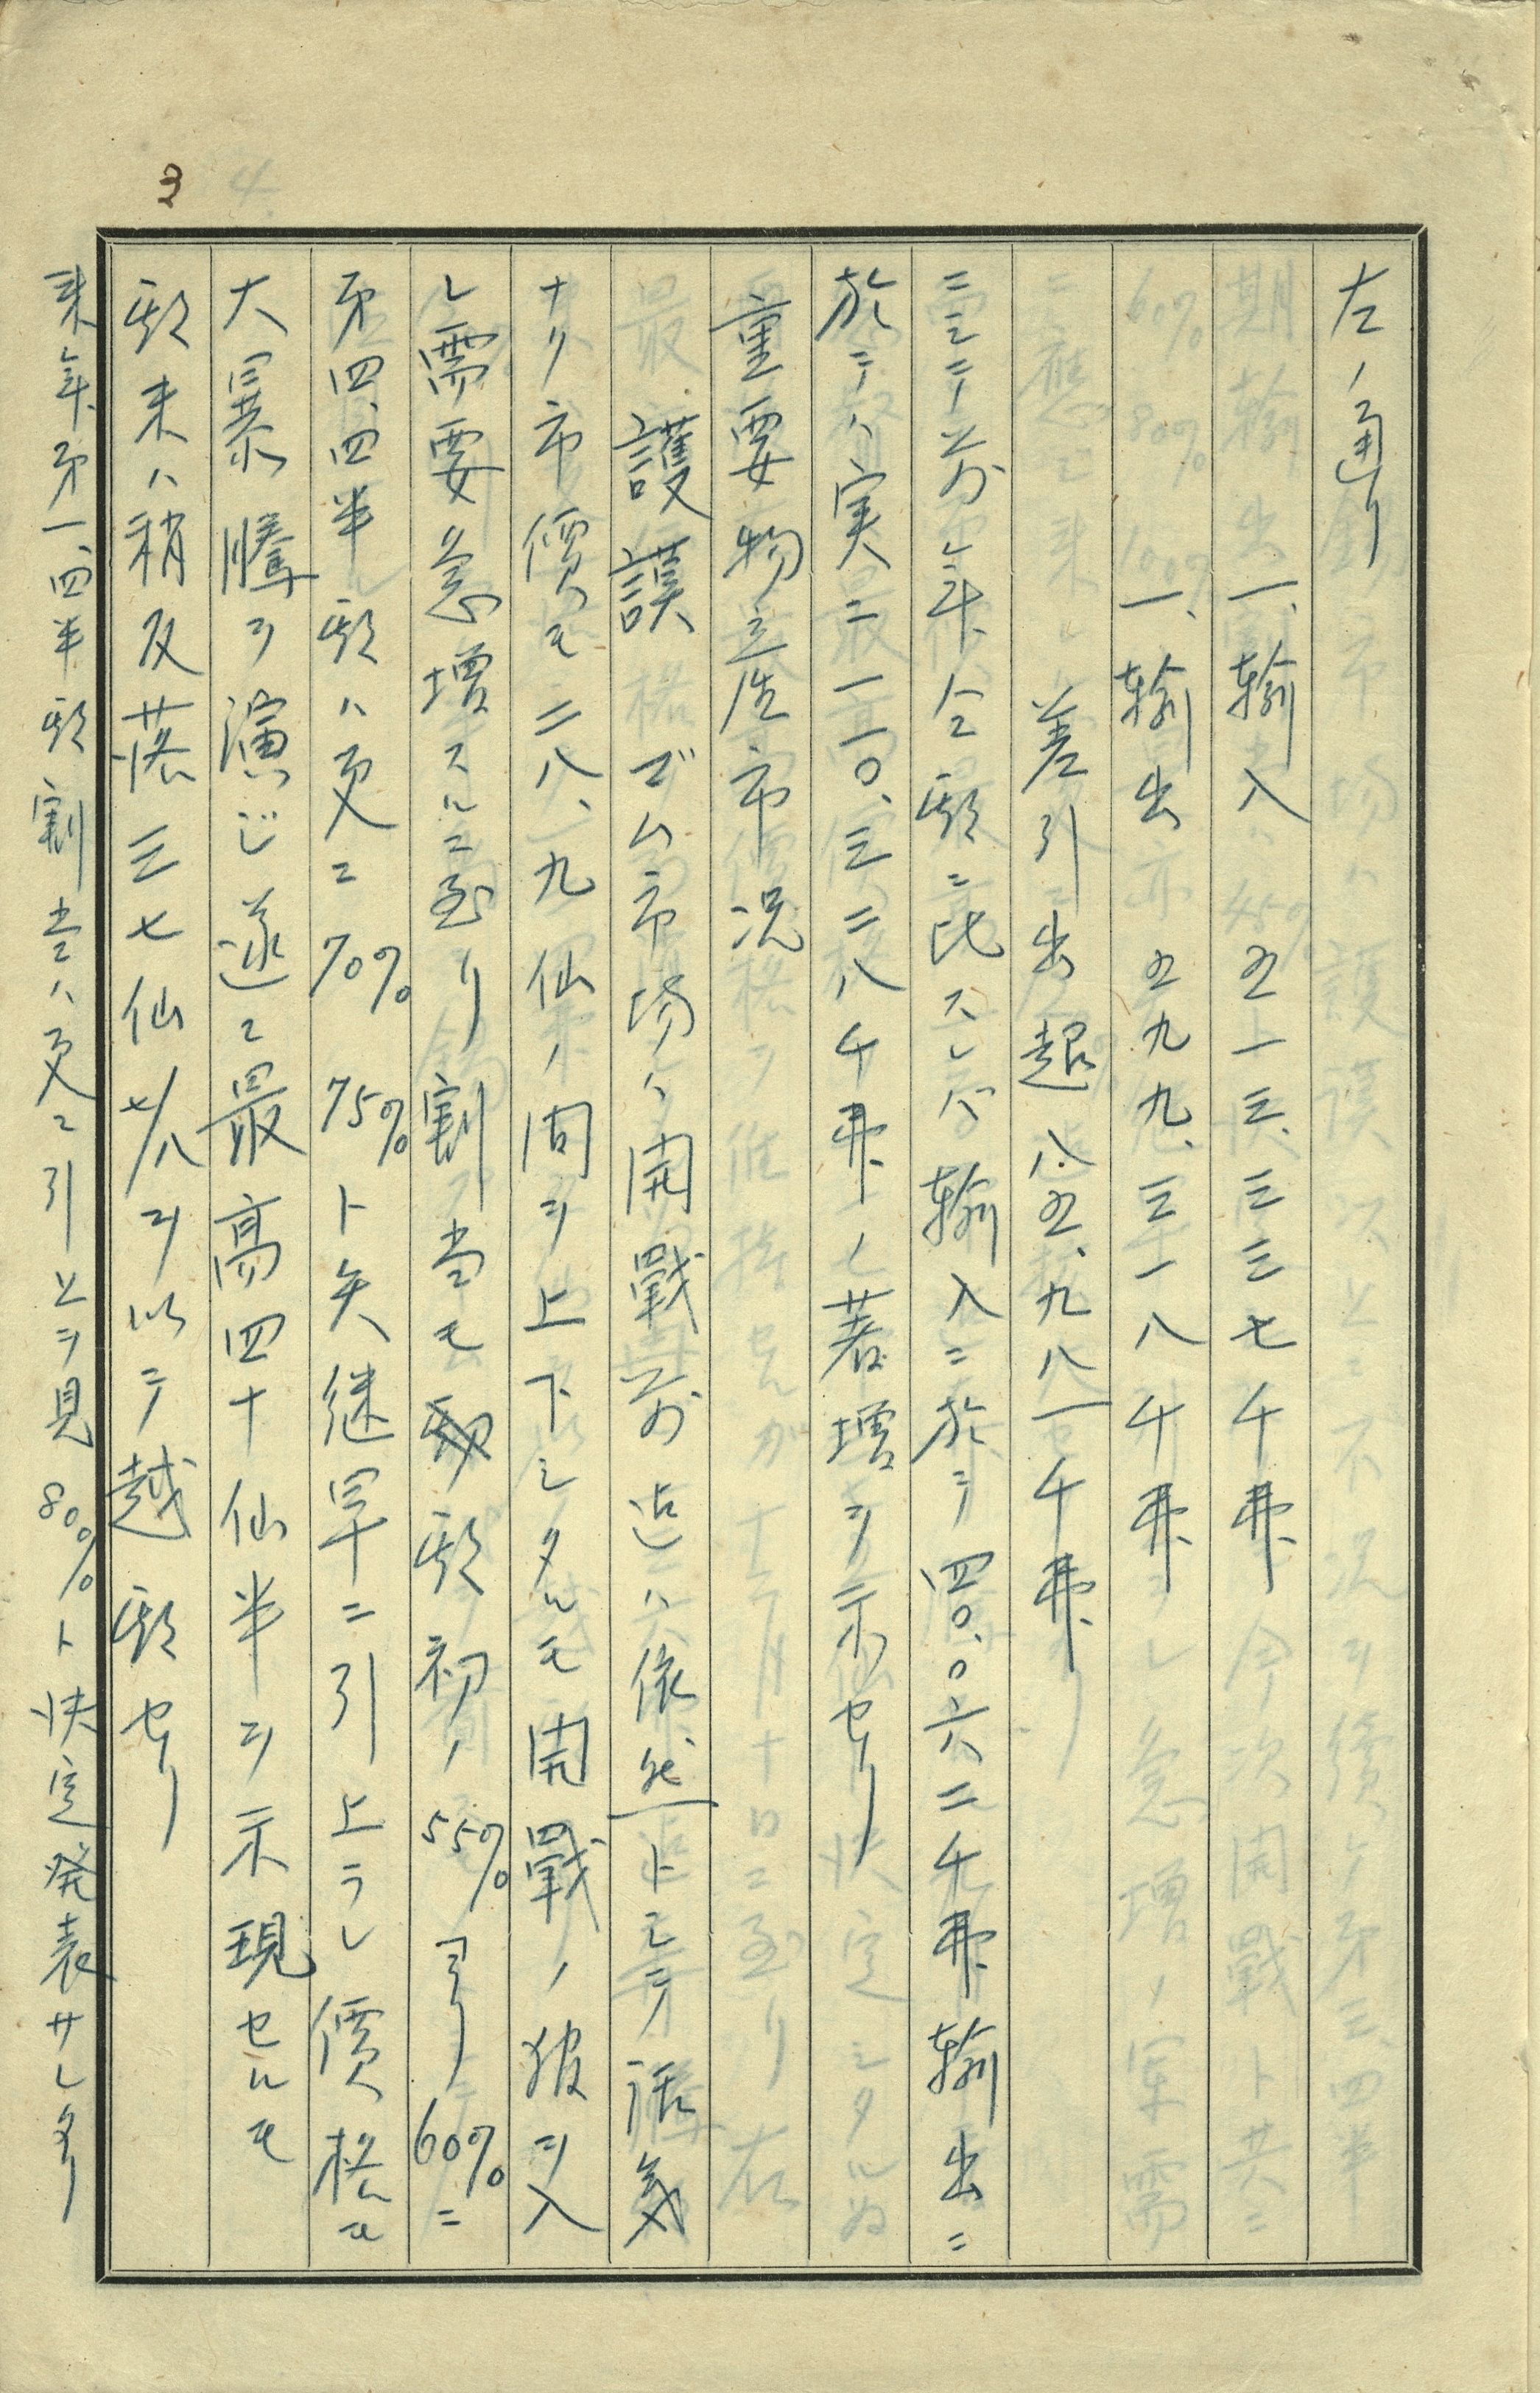 3
左ノ通リ
一、輸入 五一三、三三七千弗
一、輸出 五九九、三一八千弗
差引出超 八五、九八一千弗
ニシテ前年全期ニ比スレバ輸入ニ於テ四〇、〇六二千弗輸出ニ
於テハ実ニ一一〇、三二八千弗ノ著増ヲ示セリ
重要物産市況
護謨 ゴム市場ハ開戦前迄ハ依然トシテ活気
ナク市價モ二八、九仙ノ間ヲ上下シタルモ開戦ノ報ヲ入
レ需要急増スルニ至リ割当モ期初ノ55%ヨリ60%ニ
第四、四半期ハ更ニ70% 75%ト矢継早ニ引上ラレ價格モ
大暴騰ヲ演ジ遂ニ最高四十仙半ヲ示現セルモ
期末ハ稍反落三七仙七/八ヲ以テ越期セリ
来年第一、四半期割当ハ更ニ引上ヲ見80%ト決定発表サレタリ